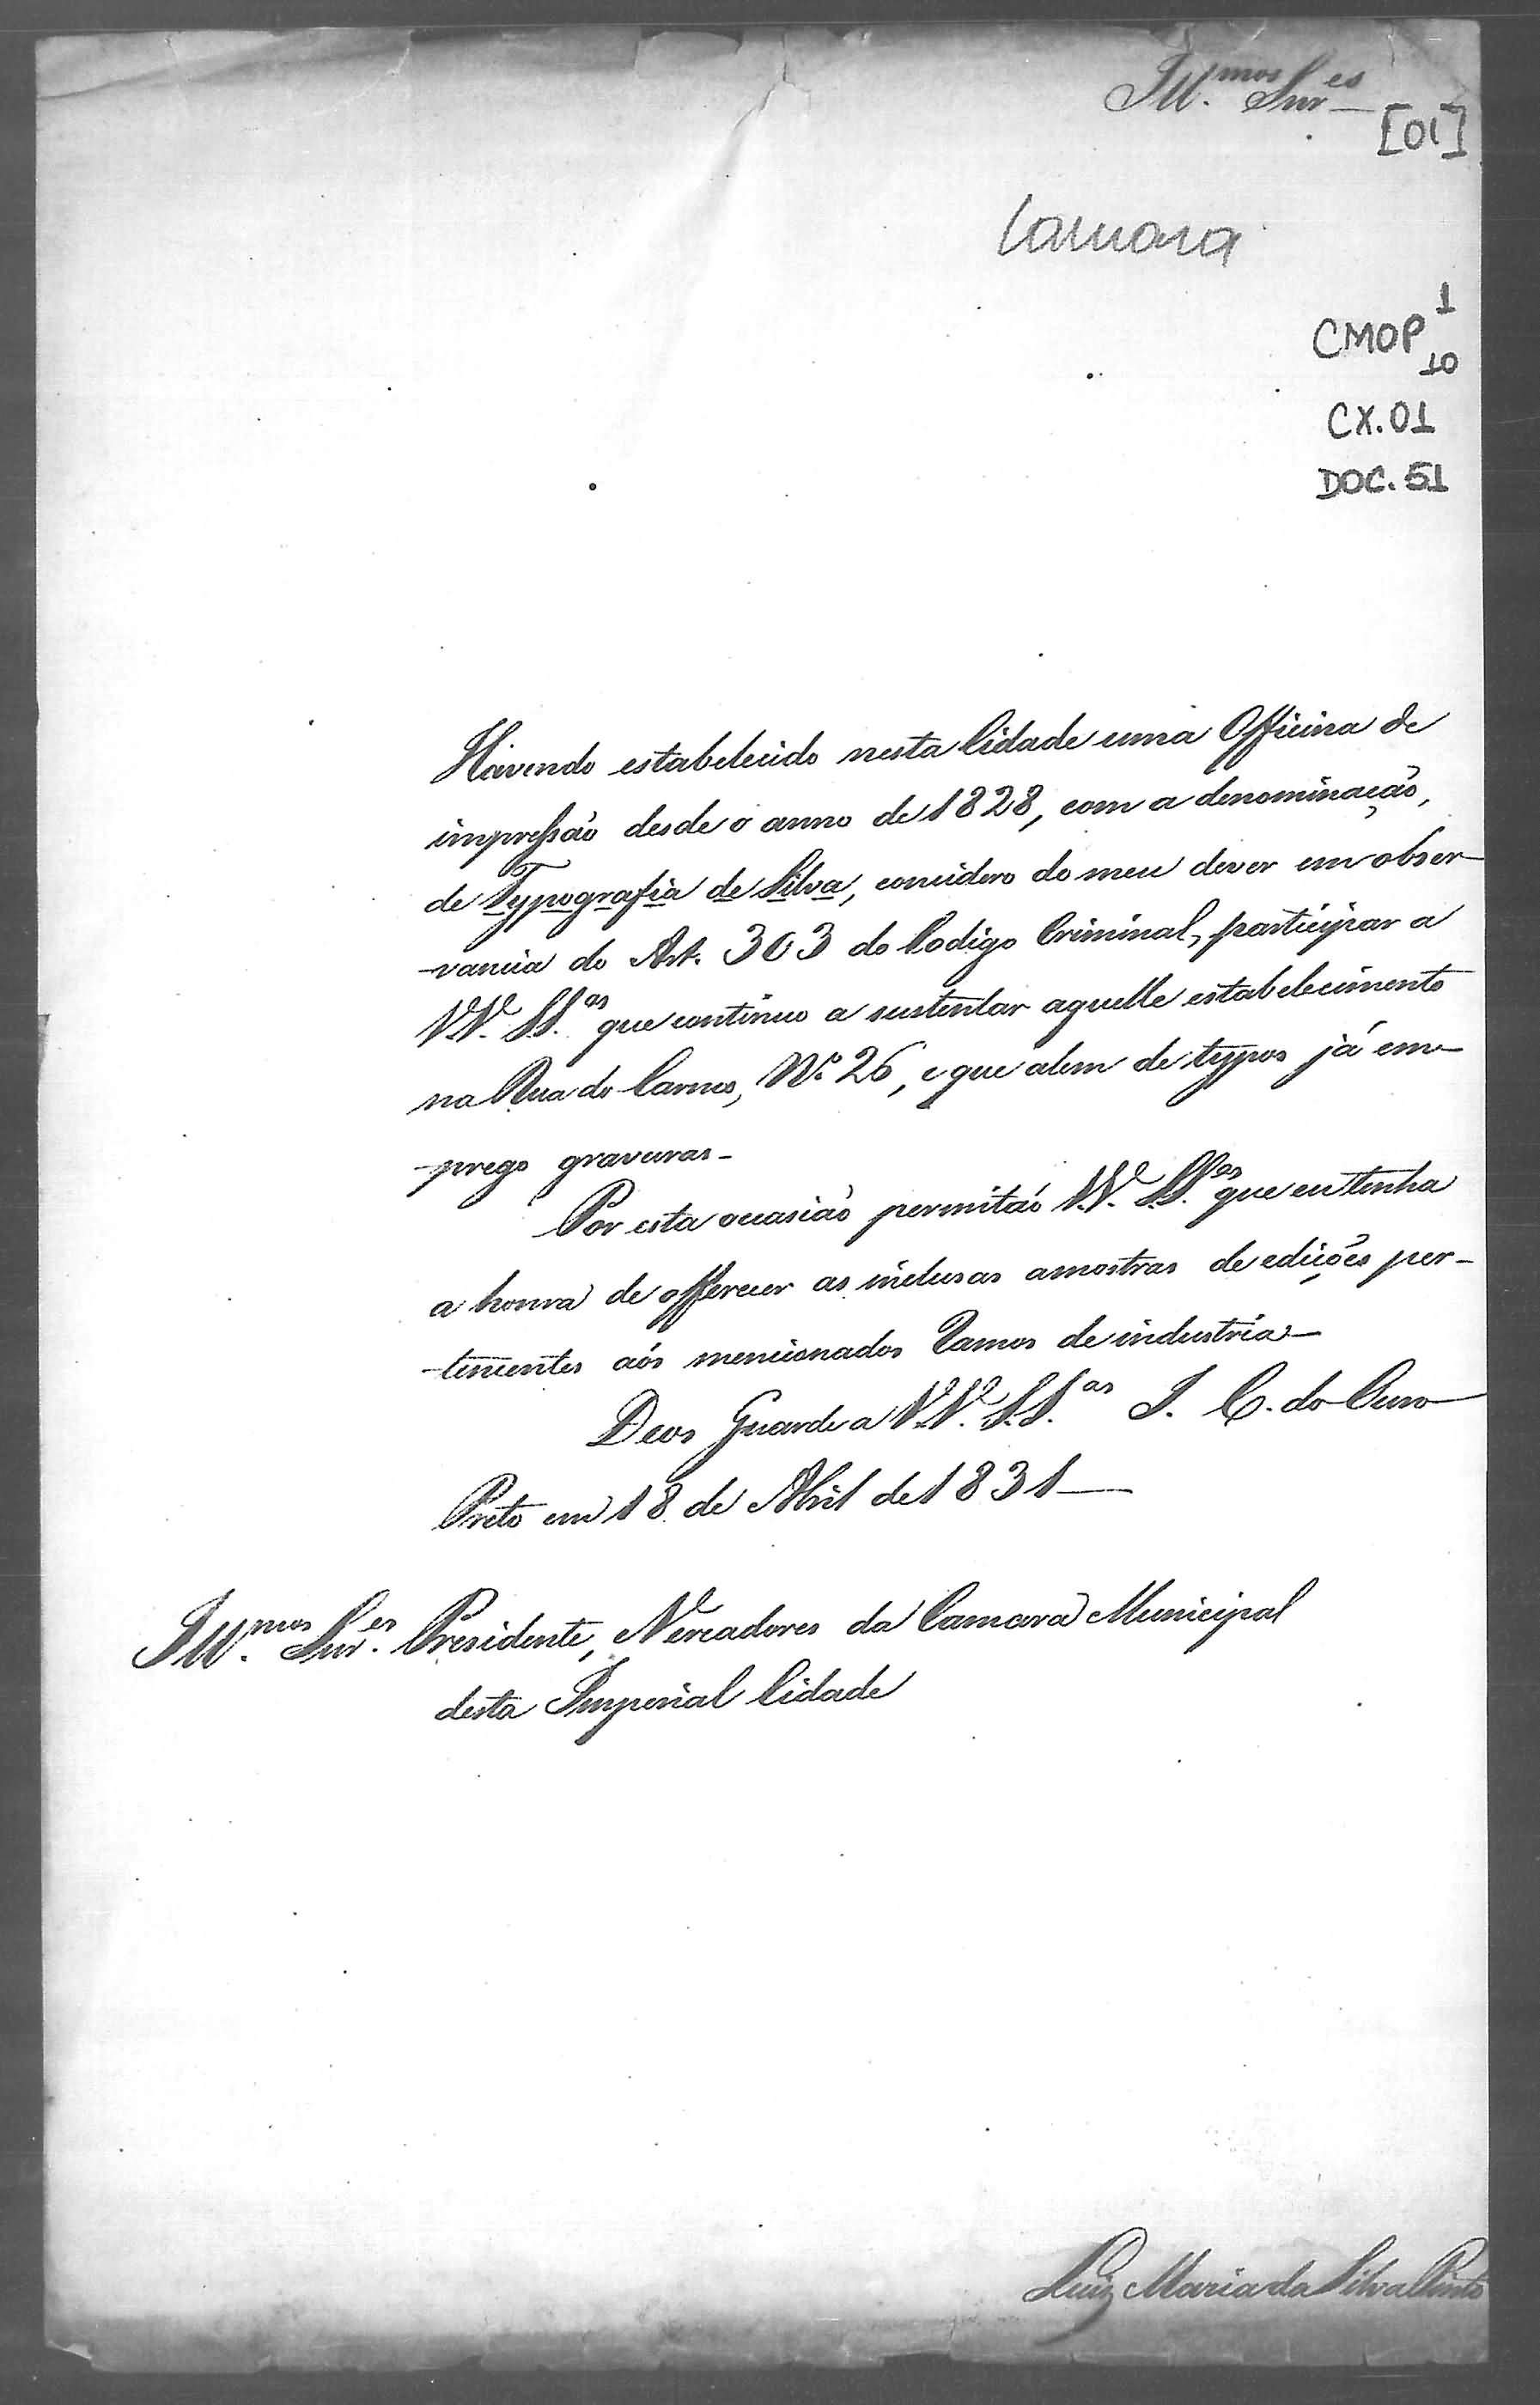 Ill.mos Snr.es
[01]
Camara
CMOP 1
10
CX.01
DOC. 51
Havendo estabelecido nesta Cidade uma Officina de
impressão desde o anno de 1828, com a denominação,
de Typografia de Silva, concidero do meu dever em obser-
-vancia do Art. 303 do Codigo Criminal, participar a
V.V. S.S.as que continuo a sustentar aquelle estabelecimento
na Rua do Carmo, N.º 26, e que alem de typos já em-
-prego gravuras-
Por esta occasião permitaõ V.V. S.S.as que eu tenha
a honra de offerecer as inclusas amostras de edições per-
-tencentes aós mencionados Ramos de industria-
Deos Guarde a V.V. S.S.as I. C. do Ouro
Preto em 18 de Abril de 1831—
Ill.mos Snr.es Presidente, Vereadores da Camara Municipal
desta Imperial Cidade
Luiz Maria da Silva Pinto